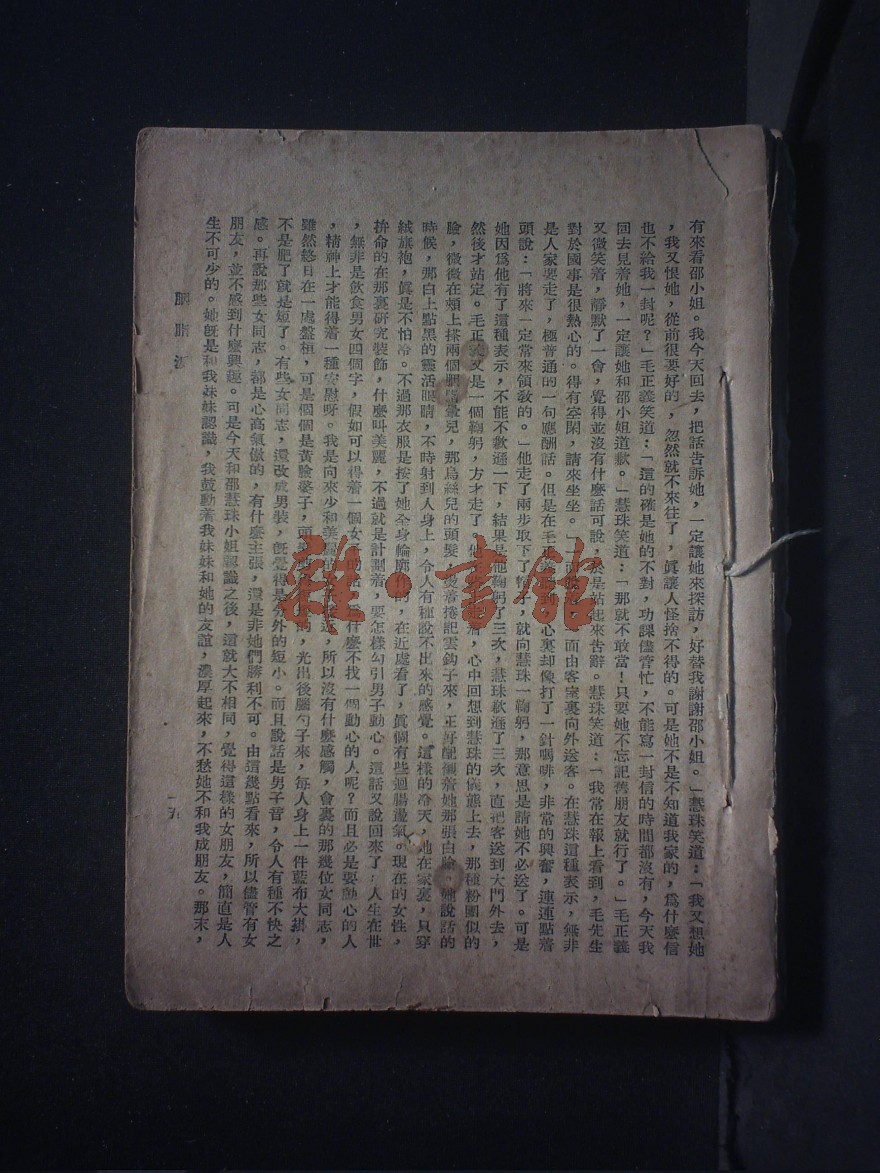 有來看邵小姐。我今天回去，把話吿訴她，一定讓她來探訪，好替我謝謝邵小姐。」慧珠笑道：「我又想她
，我又恨她，從前很要好的，忽然就不來往了，眞讓人怪捨不得的。可是她不是不知道我家的，爲什麼信
也不給我一封呢？」毛正義笑道：「這的確是她的不對，功課儘管忙，不能寫一封信的時間都沒有，今天我
回去見着她，一定讓她和邵小姐道歉。」慧珠笑道：「那就不敢當！只要她不忘記舊朋友就行了。」毛正義
又微笑着，靜默了一會，覺得並沒有什麼話可說，於是站起來吿辭。慧珠笑道：「我常在報上看到，毛先生
對於國事是很熱心的。得有空閑，請來坐坐。」一面說，一面由客室裏向外送客。在慧珠這種表示，無非
是人家要走了，極普通的一句應酬話。但是在毛正義心裏却像打了一針嗎啡，非常的興奮，連連點着
頭說：「將來一定常來領敎的。」他走了兩步取下了帽子，就向慧珠一鞠躬，那意思是請她不必送了。可是
她因爲他有了這種表示，不能不歉遜一下，結果是他鞠躬了三次，慧珠歉遜了三次，直把客送到大門外去，
然後才站定。毛正義又是一個鞠躬，方才走了。他着，心中回想到慧珠的儀態上去，那種粉團似的
臉，微微在頰上搽兩個胭脂暈兒，那烏絲兒的頭髮，燙着捲記雲鈎子來，正好配襯着她那張白臉。她說話的
時候，那白上點黑的靈活眼睛，不時射到人身上，令人有種說不出來的感覺。這樣的冷天，她在家裏，只穿
絨旗袍，眞是不怕冷。不過那衣服是按了她全身輪廓作的，在近處看了，眞個有些迴腸盪氣。現在的女性，
拚命的在那裏硏究裝飾，什麼叫美麗，不過就是計劃着，要怎樣勾引男子動心。這話又說回來了，人生在世
，無非是飲食男女四個字，假如可以得着一個女子動心，爲什麼不找一個動心的人呢？而且必是要動心的人
，精神上才能得着一種安慰呀。我是向來少和美麗的接近，所以沒有什麼感觸，會裏的那幾位女同志，
雖然終日在一處盤桓，可是個個是黃臉婆子，頭髮的，光出後腦勺子來，每人身上一件藍布大褂，
不是肥了就是短了。有些女同志，還改成男裝，旣覺得是分外的短小。而且說話是男子音，令人有種不快之
感。再說那些女同志，都是心高氣傲的，有什麼主張，還是非她們勝利不可。由這幾點看來，所以儘管有女
朋友，並不感到什麼興趣。可是今天和邵慧珠小姐認識之後，這就大不相同，覺得這樣的女朋友，簡直是人
生不可少的。她旣是和我妹妹認識，我鼓動着我妹妹和她的友誼，濃厚起來，不愁她不和我成朋友。那末，
胭脂淚
一五
雜·書館